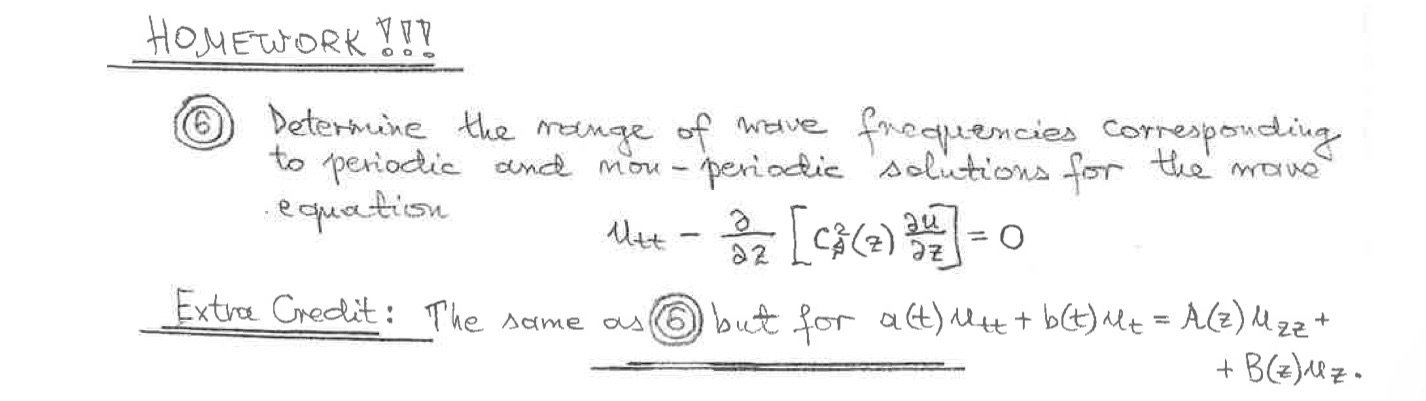 HOMEWORK !!!
⑥ Determine the range of wave frequencies corresponding
to periodic and non-periodic solutions for the wave
equation
u_tt - ∂/∂z [c_A^2(z) ∂u/∂z] = 0
Extra Credit: The same as ⑥ but for a(t) u_tt + b(t) u_t = A(z) u_zz +
+ B(z) u_z.